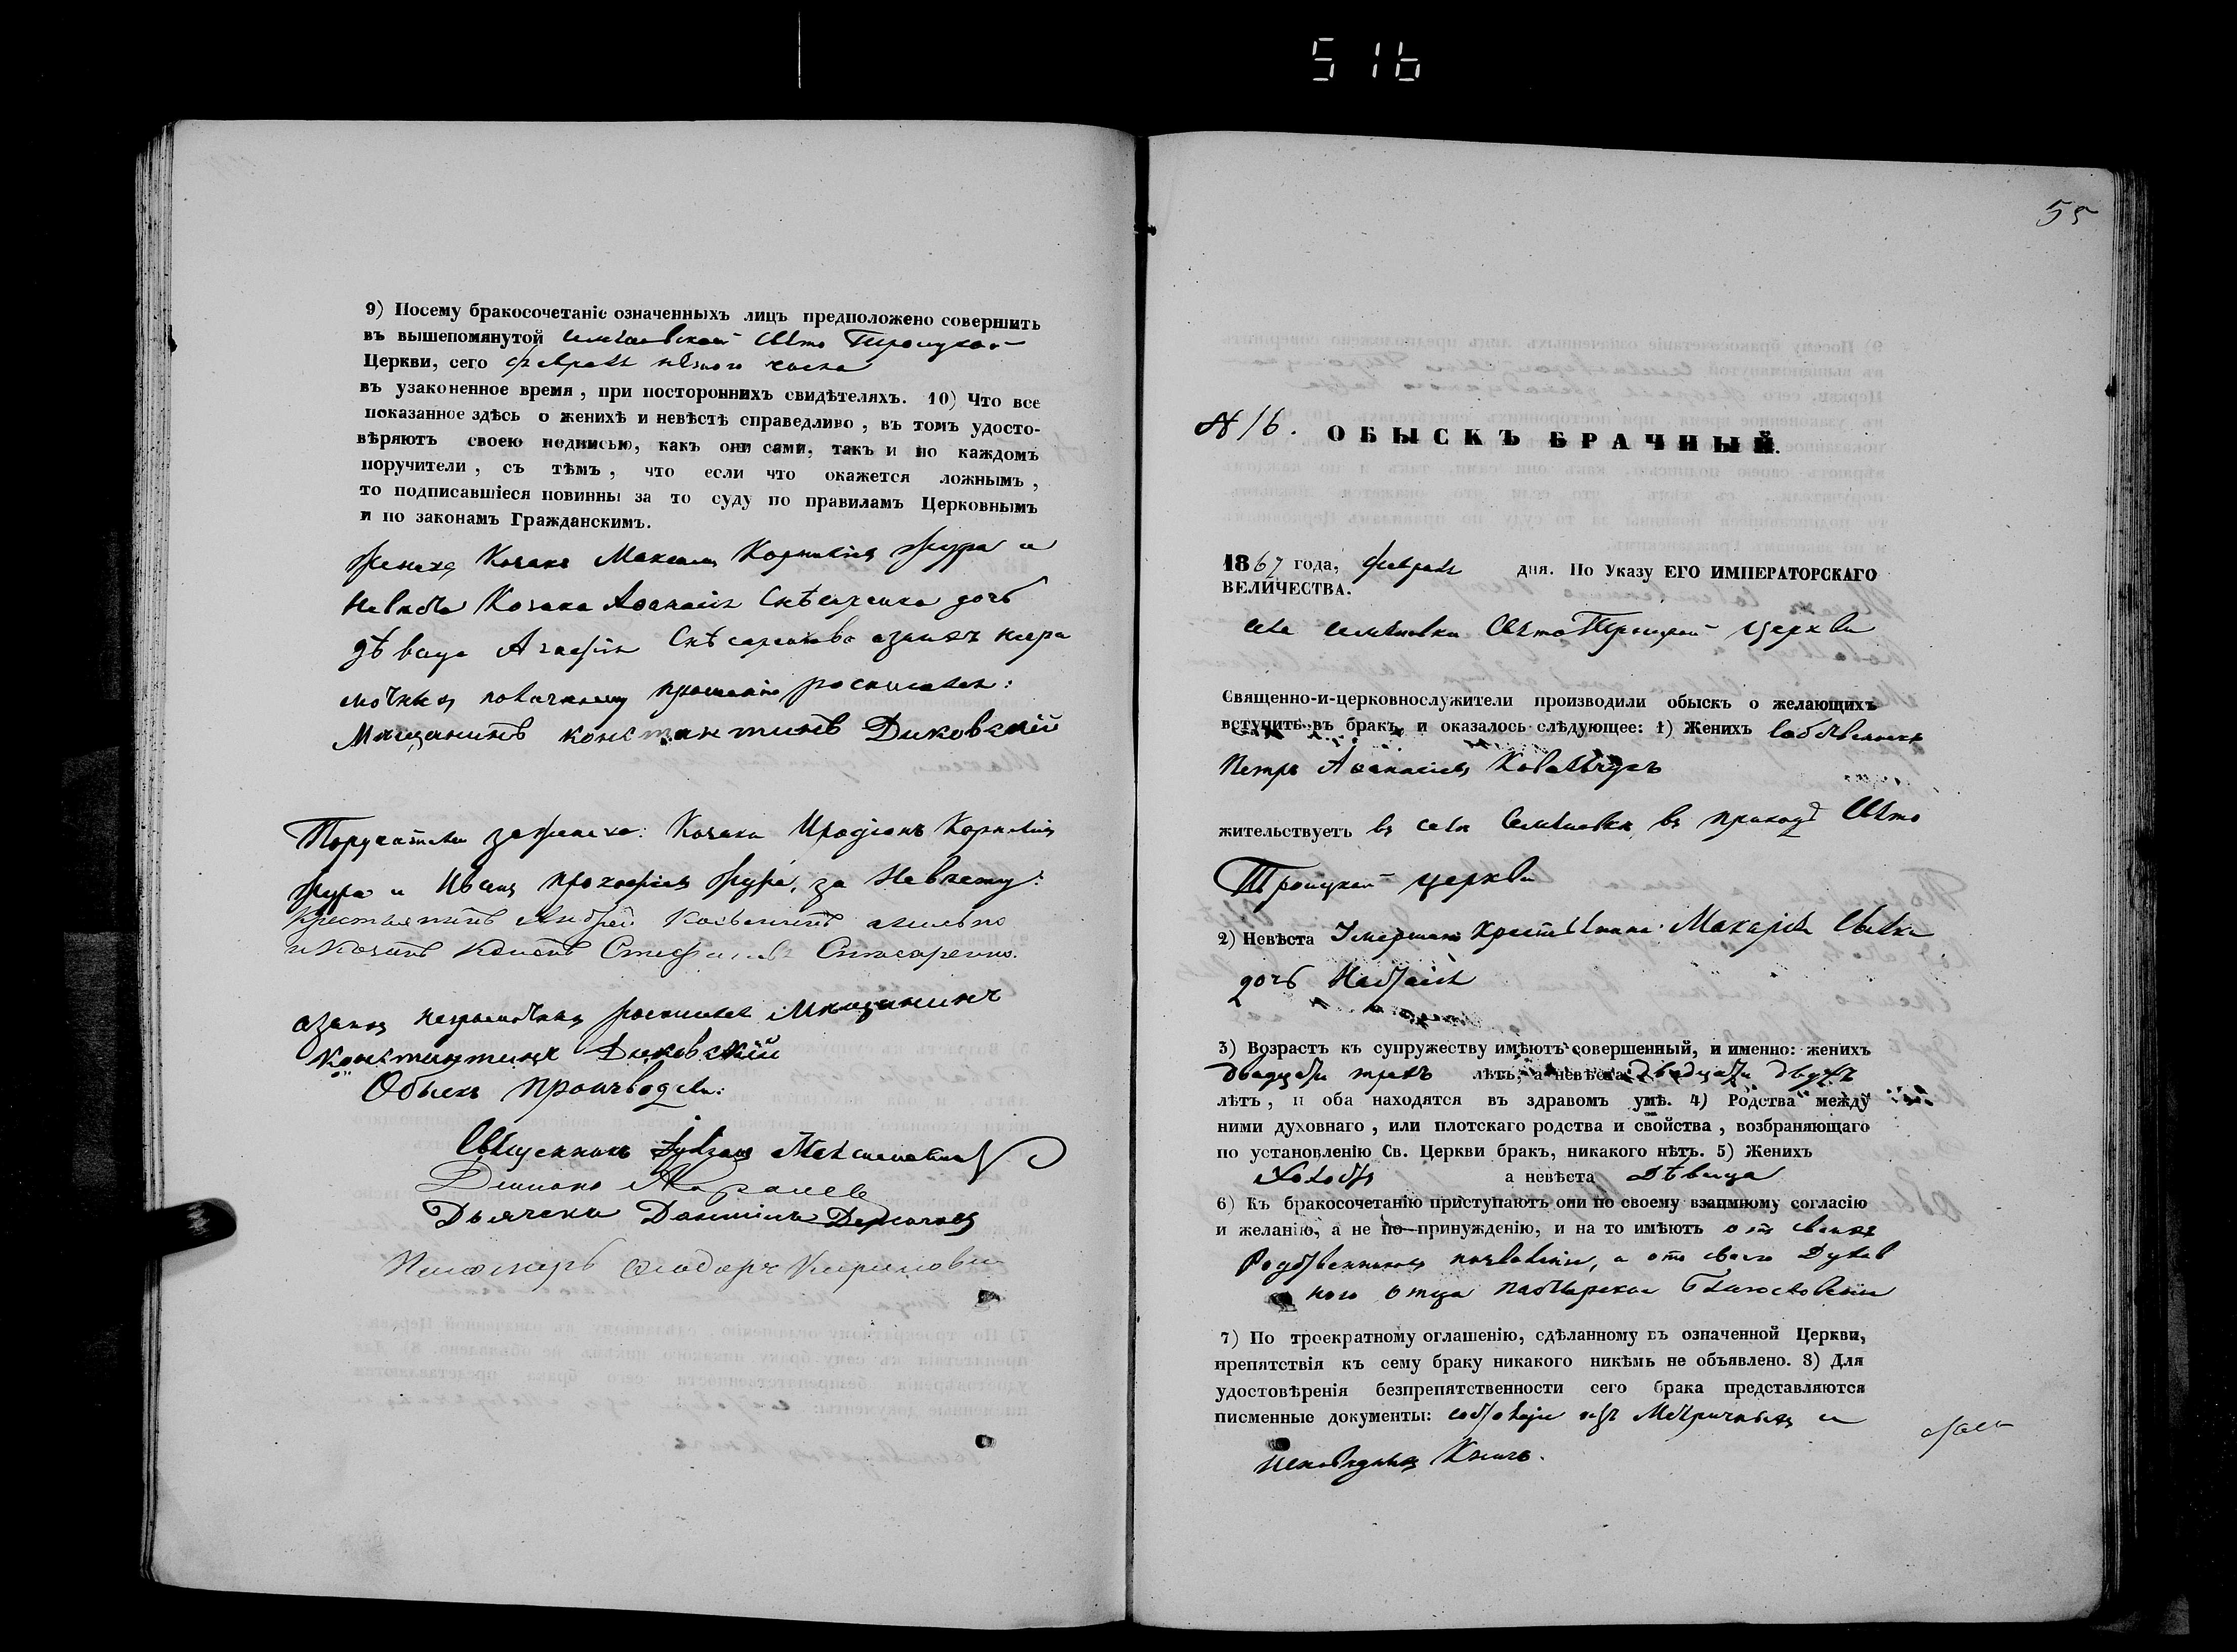 516
9) Посему бракосочетаніе означенныхъ лицъ предположено совершить
въ вышепомянутой Свято Троицкой
Церкви, сего февраля числа
въ узаконенное время, при постороннихъ свидѣтеляхъ. 10) Что все
показанное здѣсь о женихѣ и невѣстѣ справедливо, въ томъ удосто-
вѣряютъ своею подписью, какъ они сами, такъ и по каждомъ
поручители, съ тѣмъ, что если что окажется ложнымъ,
то подписавшіеся повинны за то суду по правиламъ Церковнымъ
и по законамъ Гражданскимъ.
Женихъ Козакъ Максимъ Корниліевъ и
Невѣста Козака Афанасія дочь
дѣвица Агафія а за нихъ негра
мотныхъ по личному прошенію росписался:
Мещанинъ Константинъ Диковскій
Поручители за жениха: Козаки Иродіонъ Корниліевъ
и Иванъ Прокофіевъ за Невѣсту:
Крестьянинъ Андрей
и Козакъ Стефановъ
а за нихъ неграмотныхъ росписался Мещанинъ
Константинъ Диковскій
Обыскъ производили:
Священникъ
Діаконъ
Дьячекъ Даніилъ
Пономарь Федоръ
55
№ 16. ОБЫСКЪ БРАЧНЫЙ.
1867 года, февраля дня. По Указу ЕГО ИМПЕРАТОРСКАГО
ВЕЛИЧЕСТВА.
села Семеновки Свято Троицкой церкви
Священно-и-церковнослужители производили обыскъ о желающихъ
вступить въ бракъ, и оказалось слѣдующее: 1) Женихъ
Петръ Афанасіевъ Ковальчукъ
жительствуетъ въ селѣ Семеновкѣ, въ приходѣ Свято
Троицкой церкви
2) Невѣста Умершаго крестьянина Макарія
дочь Настасія
3) Возрастъ къ супружеству имѣютъ совершенный, и именно: женихъ
двадцати трехъ лѣтъ, а невѣста двадцати двухъ
лѣтъ, и оба находятся въ здравомъ умѣ. 4) Родства между
ними духовнаго, или плотскаго родства и свойства, возбраняющаго
по установленію Св. Церкви бракъ, никакого нѣтъ. 5) Женихъ
холостъ а невѣста дѣвица
6) Къ бракосочетанію приступаютъ они по своему взаимному согласію
и желанію, а не по принужденію, и на то имѣютъ отъ своихъ
Родственниковъ позволеніе, а отъ своего Духов
ного отца пастырское благословеніе
7) По троекратному оглашенію, сдѣланному въ означенной Церкви,
препятствія къ сему браку никакого никѣмъ не объявлено. 8) Для
удостовѣренія безпрепятственности сего брака представляются
писменные документы: изъ Метрическихъ и
исповѣдныхъ Книгъ.